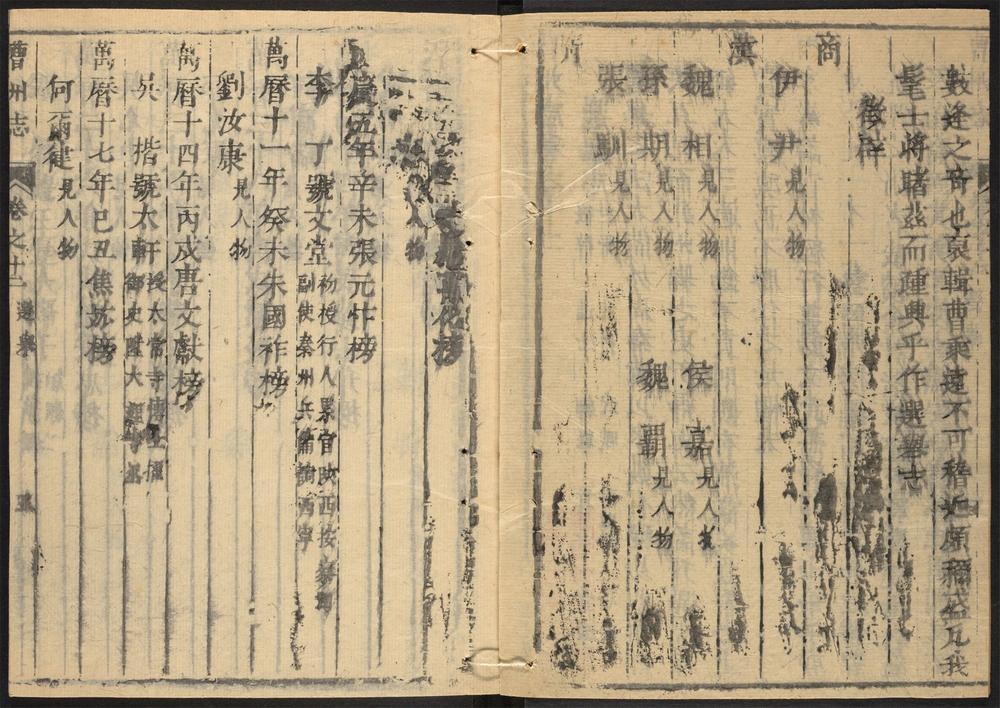 數逢之奇也裒輯曹乘遠不可稽近頗稱盛凡我
髦士將睹茲而踵興乎作選舉志
徵辟
商
伊尹見人物
漢
魏相見人物 侯嘉見人物
孫期見人物 魏覇見人物
張馴見人物
人物
慶五年辛未張元忭榜
李丁號文堂初授行人累官陝西按察司副使秦州兵備調西寧
萬曆十一年癸未朱國祚榜
劉汝康見人物
萬曆十四年丙戌唐文獻榜
吳楷號太軒授太常寺博士 御史陞大
萬曆十七年己丑焦竑榜
何爾健見人物
曹州志 卷之十二 選舉 五